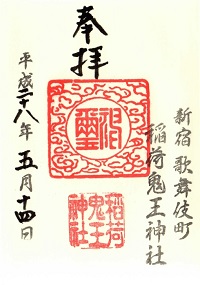 奉拝
新宿歌舞伎町
稲荷鬼王神社
稲荷
鬼王
神社
平成二十八年五月十四日